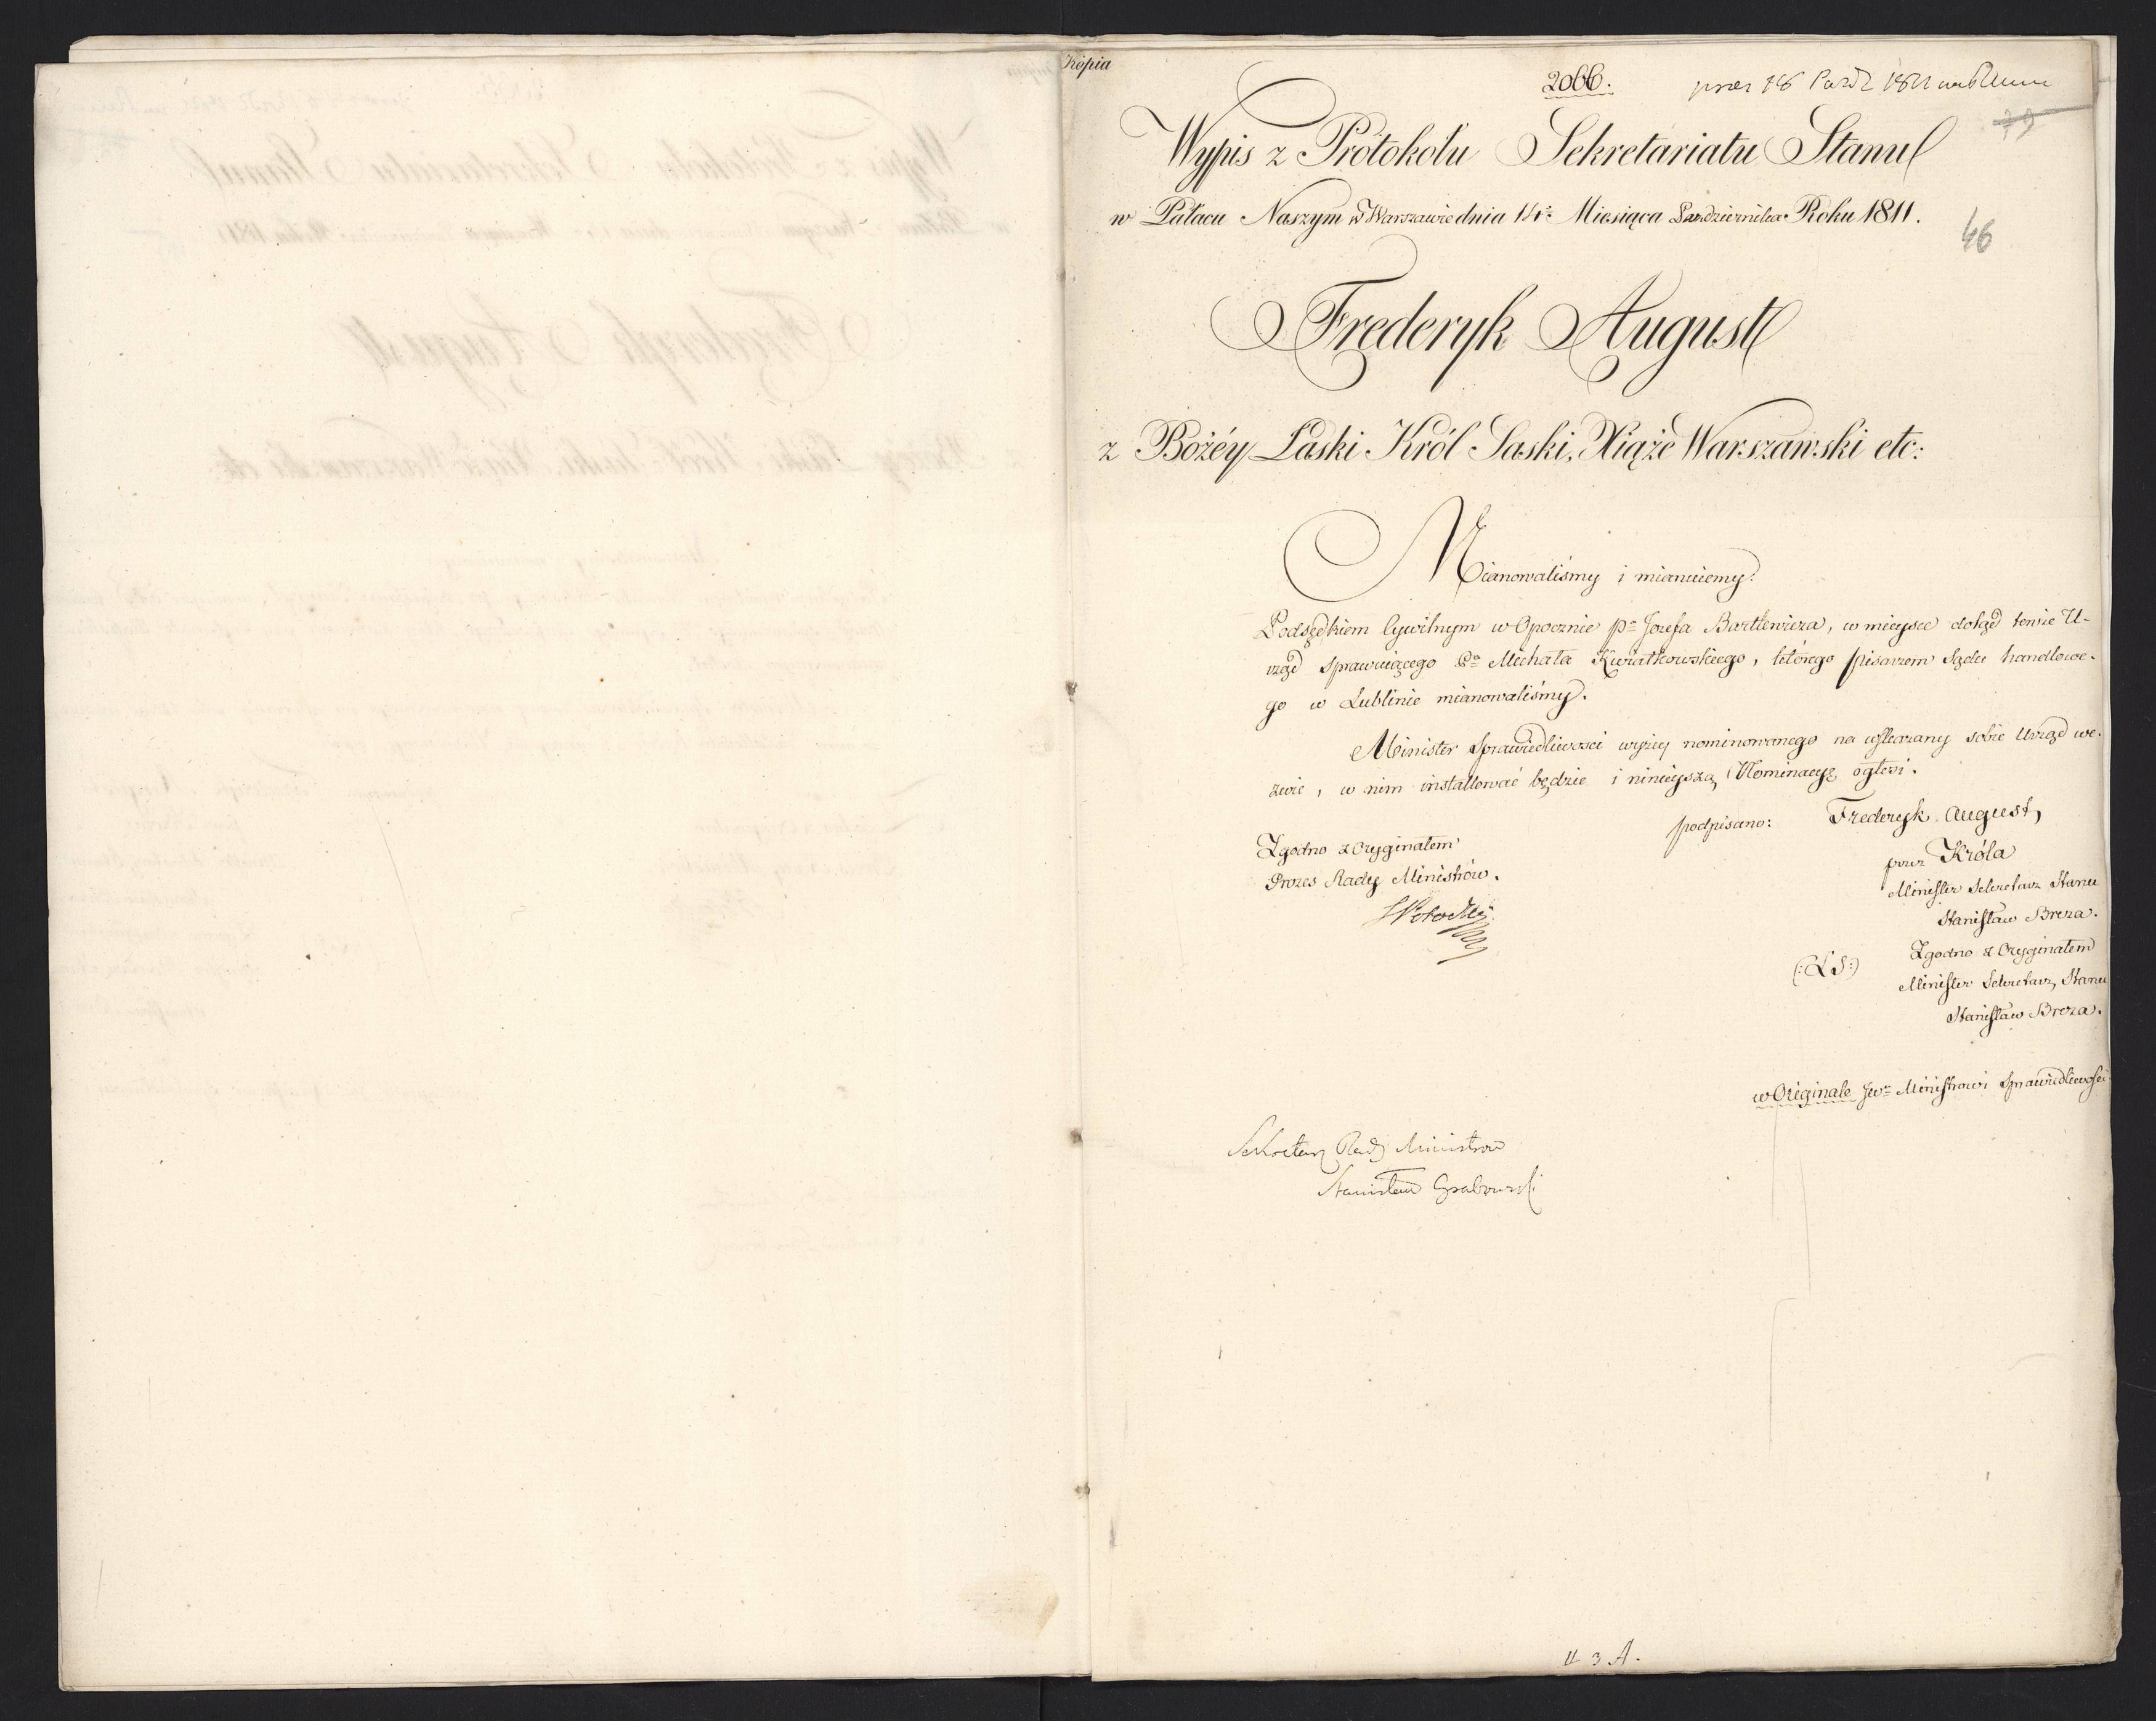 Kopia
2066.
prez 18 Paźd 1811
79
Wypis z Protokołu Sekretariatu Stanu
w Pałacu Naszym w Warszawie dnia 14: Miesiąca Października Roku 1811.
46
Frederyk August
z Bożéy Łaski Król Saski, Xiąże Warszawski etc:
Mianowaliśmy i mianuiemy:
Podsędkiem Cywilnym w Opocznie Pa Jozefa Bartkewicza, w mieysce dotąd tenże U-
rząd sprawuiącego Pa Michała Kwiatkowskiego, którego Pisarzem Sądu handlowe-
go w Lublinie mianowaliśmy.
Minister Sprawiedliwości wyżey nominowanego na wskazany sobie Urząd we-
zwie, w nim installować będzie i ninieyszą Nominacyę ogłosi.
podpisano: Frederyk August,
Zgodno z Oryginałem
Prezes Rady Ministrów.
przez Króla
Minister Sekretarz Stanu
Stanisław Breza.
(:LS:)
Zgodno z Oryginałem
Minister Sekretarz, Stanu
Stanisław Breza.
w Originale Jwu Ministrowi Sprawiedliwości
Sekretarz Rady Ministrow
Stanisław Grabowski
II 3 A.